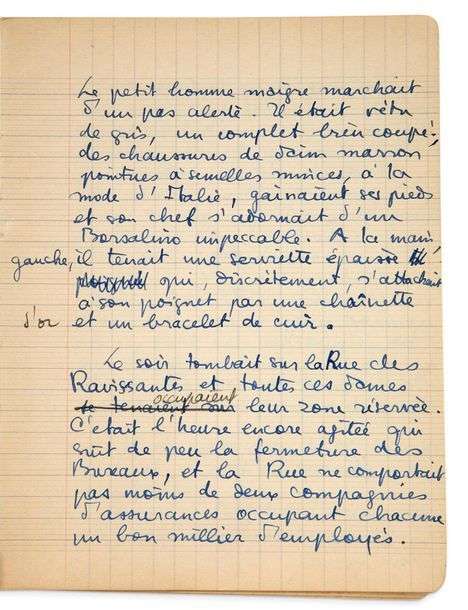 Le petit homme maigre marchait
d'un pas alerte. Il était vêtu
de gris, un complet bien coupé,
des chaussures de daim marron
pointues à semelles minces, à la
mode d'Italie, gainaient ses pieds
et son chef s'adornait d'un
Borsalino impeccable. A la main
gauche, il tenait une serviette épaisse
poignet qui, discrètement, s'attachait
à son poignet par une chaînette
d'or et un bracelet de cuir.
Le soir tombait sur la Rue des
Ravissantes et toutes ces dames
occupaient
se tenaient sur leur zone réservée.
C'était l'heure encore agitée qui
suit de peu la fermeture des
Bureaux, et la Rue ne comportait
pas moins de deux compagnies
d'assurances occupant chacune
un bon millier d'employés.